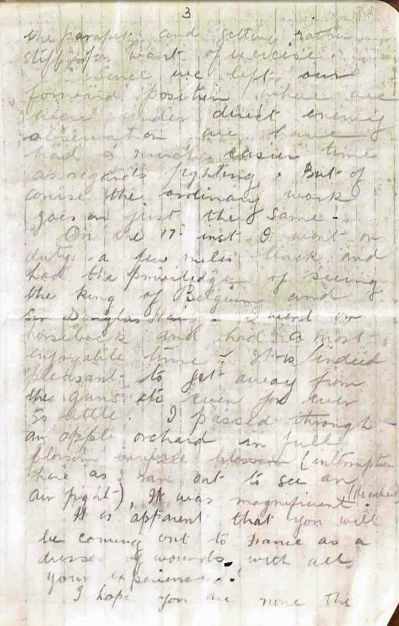 3
the parapet and getting rather
stiff for want of exercise.
Since we left our
forward position where we
were under direct enemy
observation we have
had a much easier time
as regards fighting. But of
course the ordinary work
goes on just the same.
On the 17th inst I went on
duty a few miles back and
had the priviledge of seeing
the King of Belgium and
Sir Douglas Haig I went on
horseback and had a most
enjoyable time. It is indeed
pleasant to get away from
the guns etc even for ever
so little. I passed through
an apple orchard in full
blossom blossom (interruption
here as I ran out to see an
air fight), It was magnificent
It is apparent that you will
be coming out to France as a
dresser of wounds with all
your experience.
I hope you are none the